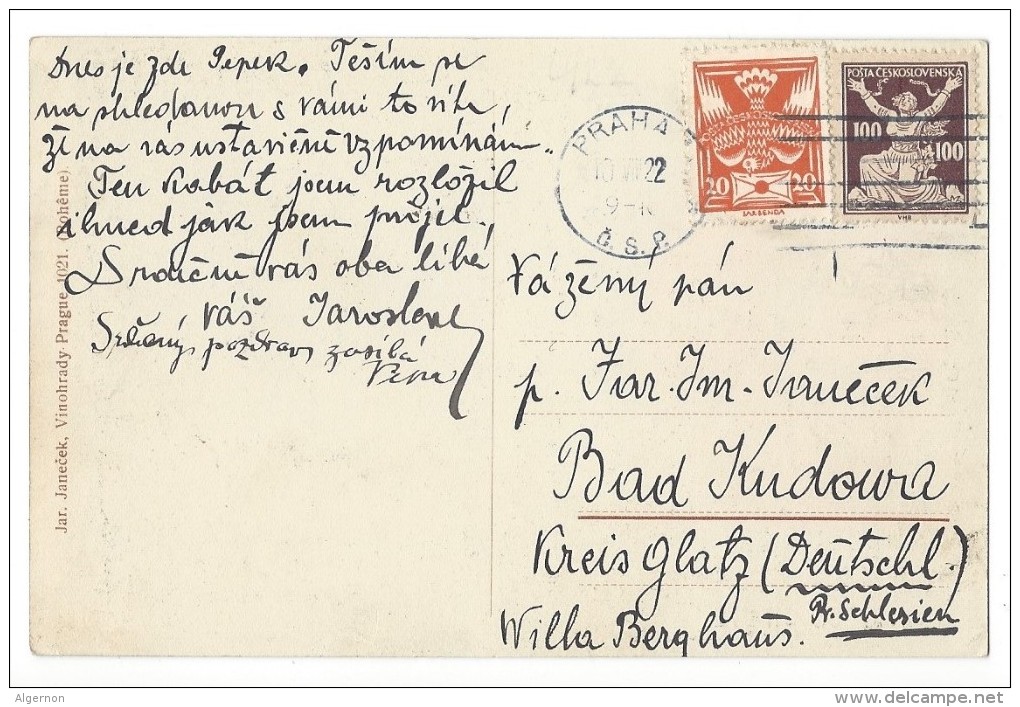 Dnes je zde Pepek. Těším se
na shledanou s vámi to víte,
že na vás ustavičně vzpomínám.
Ten kabát jsem rozložil
ihned jak jsem přijel.
Srdečně vás oba líbá
váš Jaroslav
Srdečný pozdrav zasílá
Pepa
Jar. Janeček, Vinohrady-Prague 1021. (Bohême)
PRAHA
10 VII 22
9-
Č.S.P.
20 20
POŠTA ČESKOSLOVENSKÁ
100
100
Vážený pán
p. Jar. Jm. Janeček
Bad Kudowa
Kreis Glatz (Deutschl.)
Pr. Schlesien
Willa Berghaus.
Algernon
http://www.delcampe.net